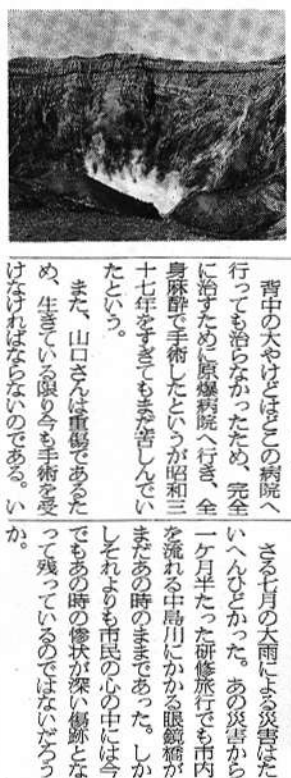 背中の大やけどはどこの病院へ
行っても治らなかったため、完全
に治すために原爆病院へ行き、全
身麻酔で手術したというが昭和三
十七年をすぎてもまだ苦しんでい
たという。
また、山口さんは重傷であるた
め、生きている限り今も手術を受
けなければならないのである。い
さる七月の大雨による災害はた
いへんひどかった。あの災害から
一ケ月半たった研修旅行でも市内
を流れる中島川にかかる眼鏡橋が
まだあの時のままであった。しか
しそれよりも市民の心の中には今
でもあの時の惨状が深い傷跡とな
って残っているのではないだろう
か。